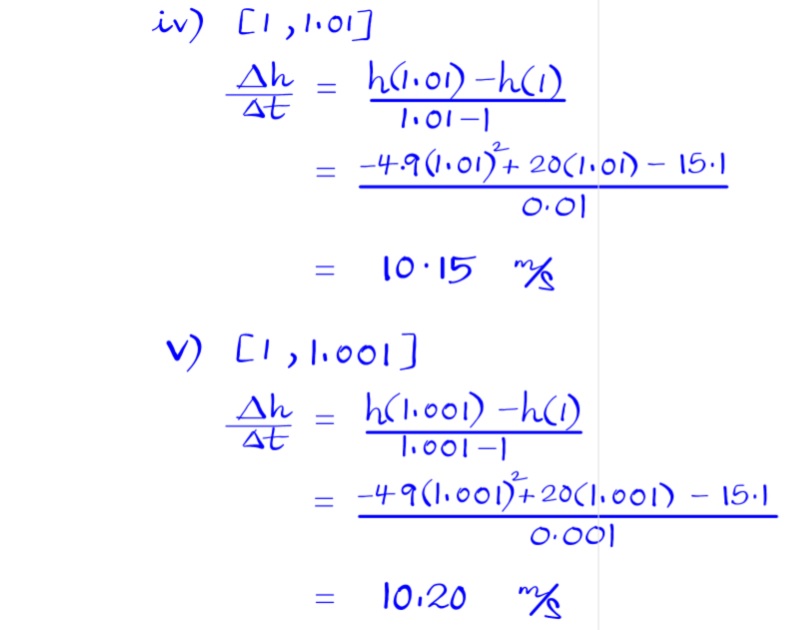 iv) [1, 1.01]
Δh/Δt = (h(1.01) - h(1))/(1.01 - 1)
= (-4.9(1.01)² + 20(1.01) - 15.1)/0.01
= 10.15 m/s
v) [1, 1.001]
Δh/Δt = (h(1.001) - h(1))/(1.001 - 1)
= (-49(1.001)² + 20(1.001) - 15.1)/0.001
= 10.20 m/s